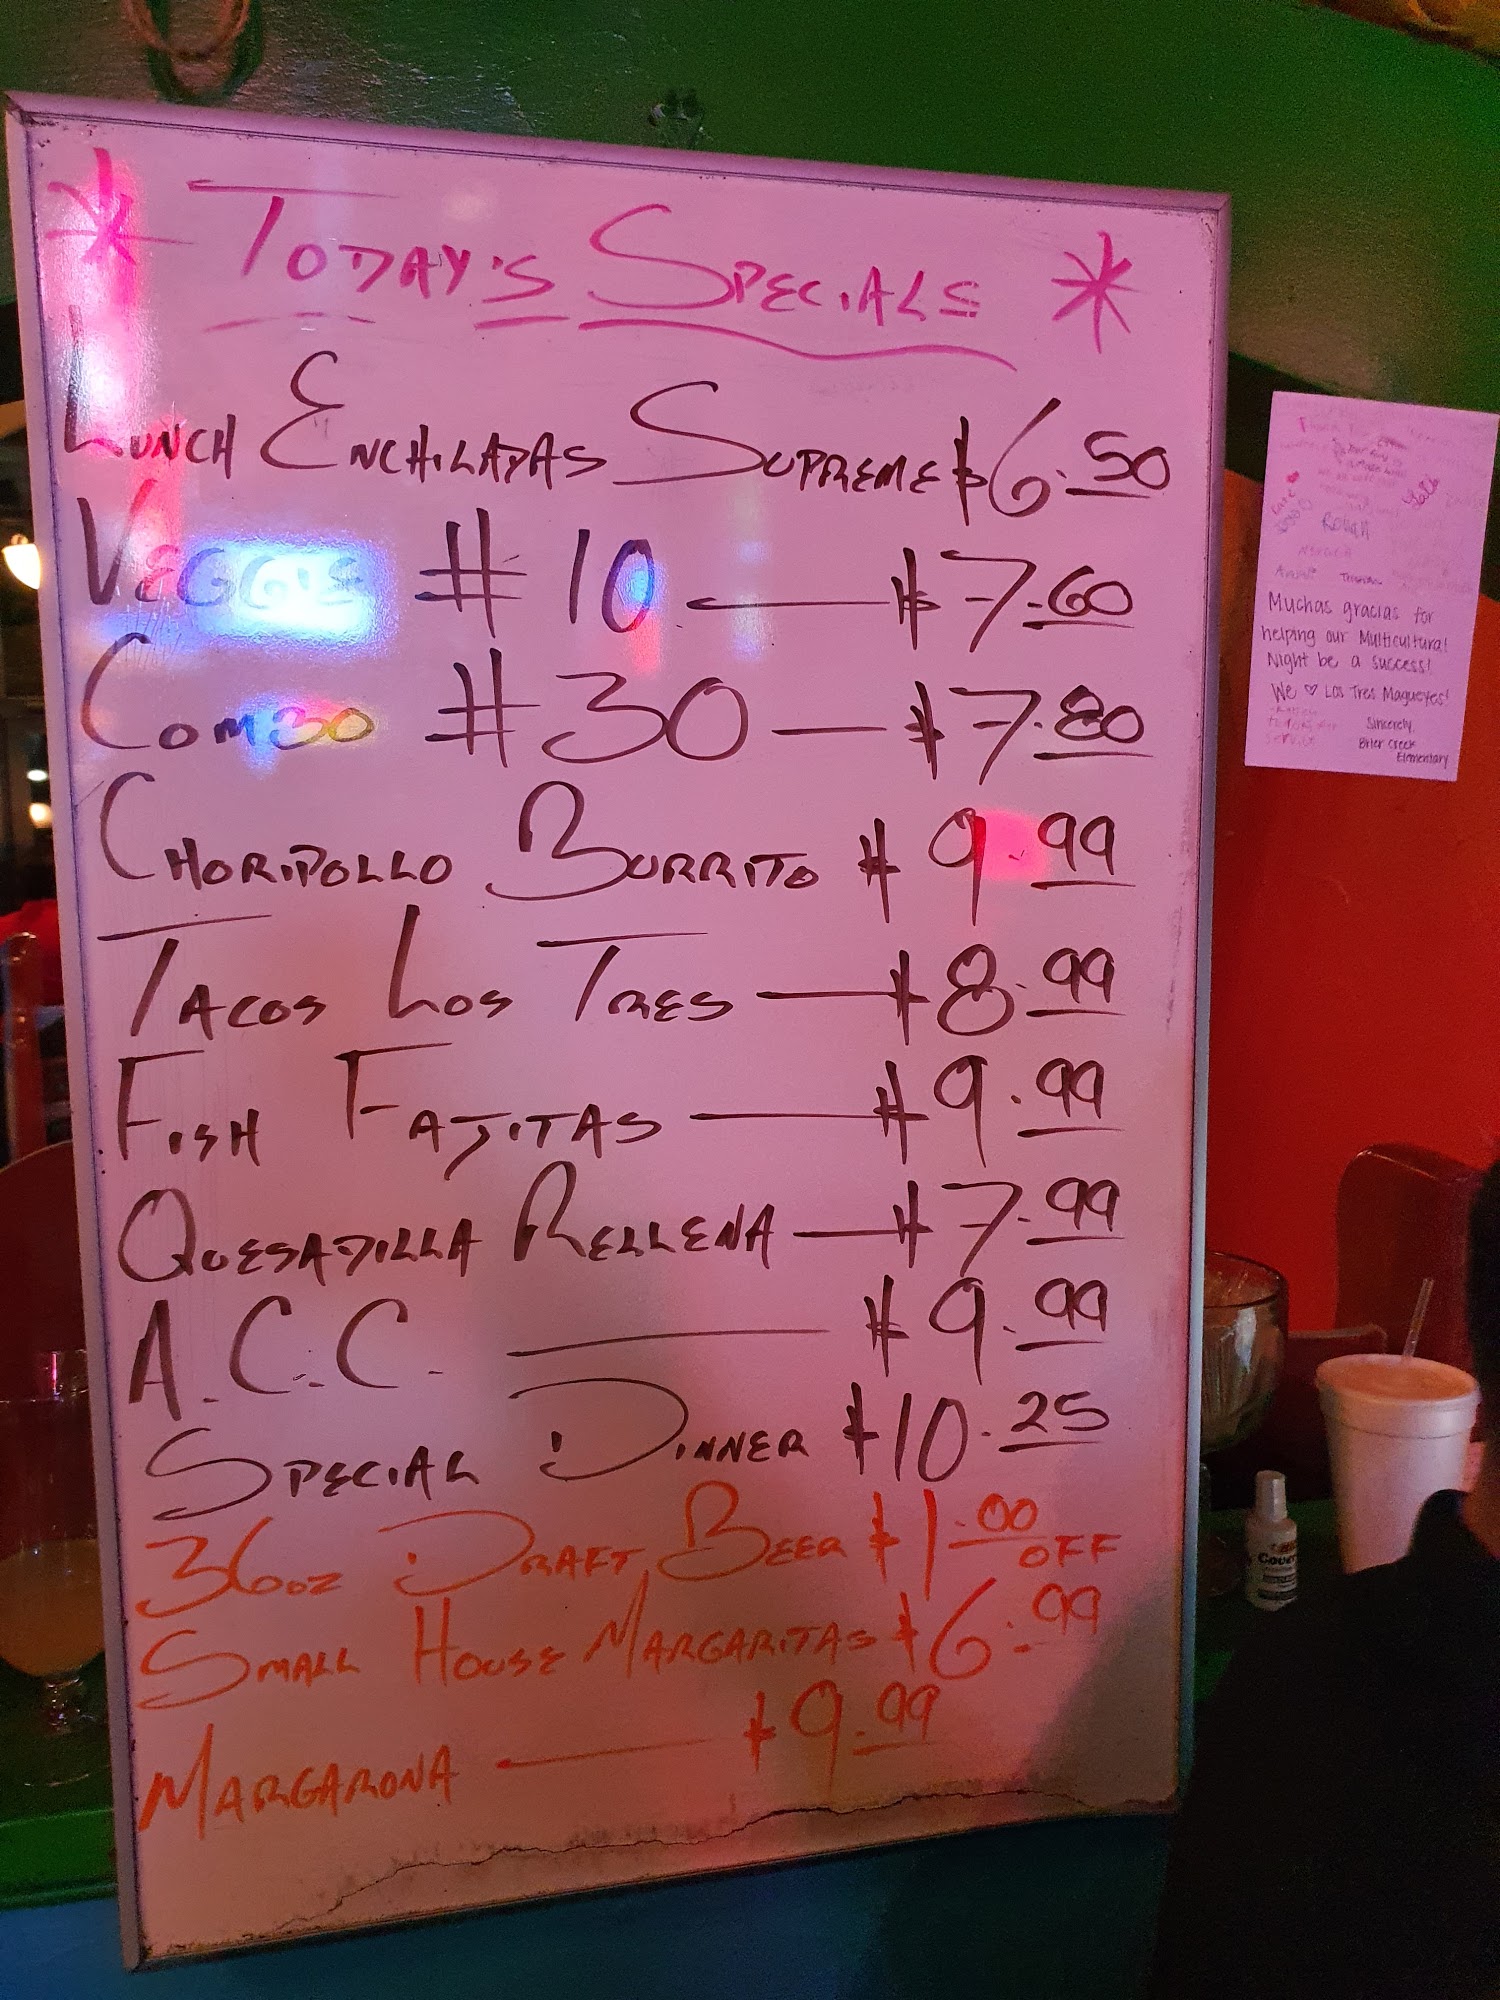 * TODAY'S SPECIALS *
LUNCH ENCHILADAS SUPREME $6.50
VEGGIE # 10 — $7.60
COMBO # 30 — $7.80
CHORIPOLLO BURRITO $9.99
TACOS LOS TRES — $8.99
FISH FAJITAS — $9.99
QUESADILLA RELLENA — $7.99
A.C.C. — $9.99
SPECIAL DINNER $10.25
36oz DRAFT BEER $1.00 OFF
SMALL HOUSE MARGARITAS $6.99
MARGARONA — $9.99
Rowan
Muchas gracias for
helping our Multicultural
Night be a success!
We ♡ Los Tres Magueyes!
Sincerely,
Brier Creek
Elementary